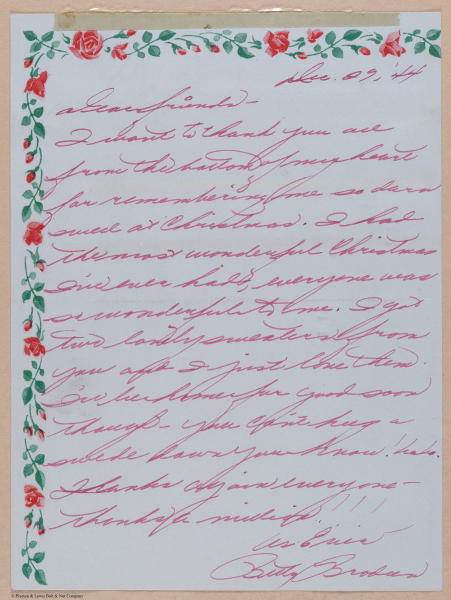 Dec. 29, '44
Dear friends -
I want to thank you all
from the bottom of my heart
for remembering me so darn
swed at Christmas. I had
the most wonderful Christmas
I've ever had, everyone was
so wonderful to me. I got
two lovely sweaters from
you and I just love them.
I'll be home for good soon
though - you can't keep a
swede down you know! haha.
Thanks again everyone -
thanks a million!!!
As Ever
Betty
© Preston & Lewis Bolt & Nut Company